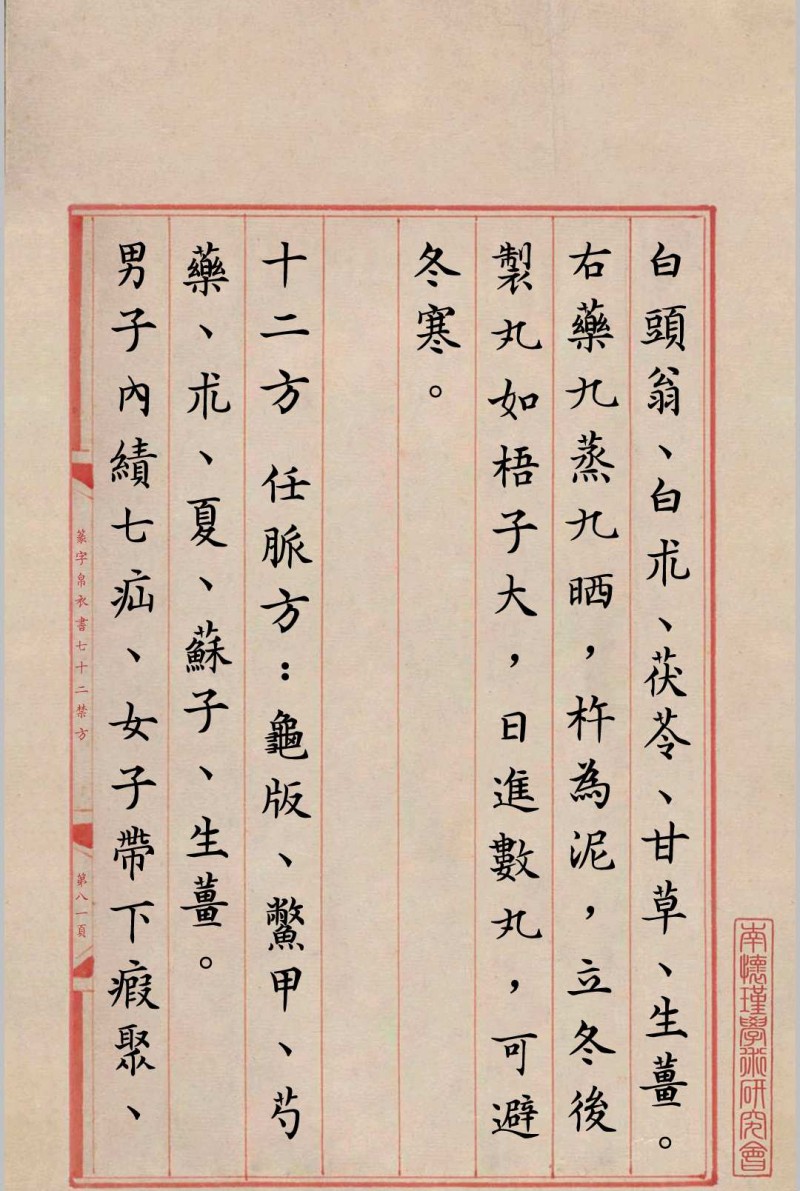 白頭翁、白朮、茯苓、甘草、生薑。
右藥九蒸九晒，杵為泥，立冬後
製丸如梧子大，日進數丸，可避
冬寒。
十二方　任脈方：龜版、鱉甲、芍
藥、朮、夏、蘇子、生薑。
男子內績七疝、女子帶下瘕聚、
篆字帛衣書七十二禁方
第八一頁
南懷瑾學術研究會